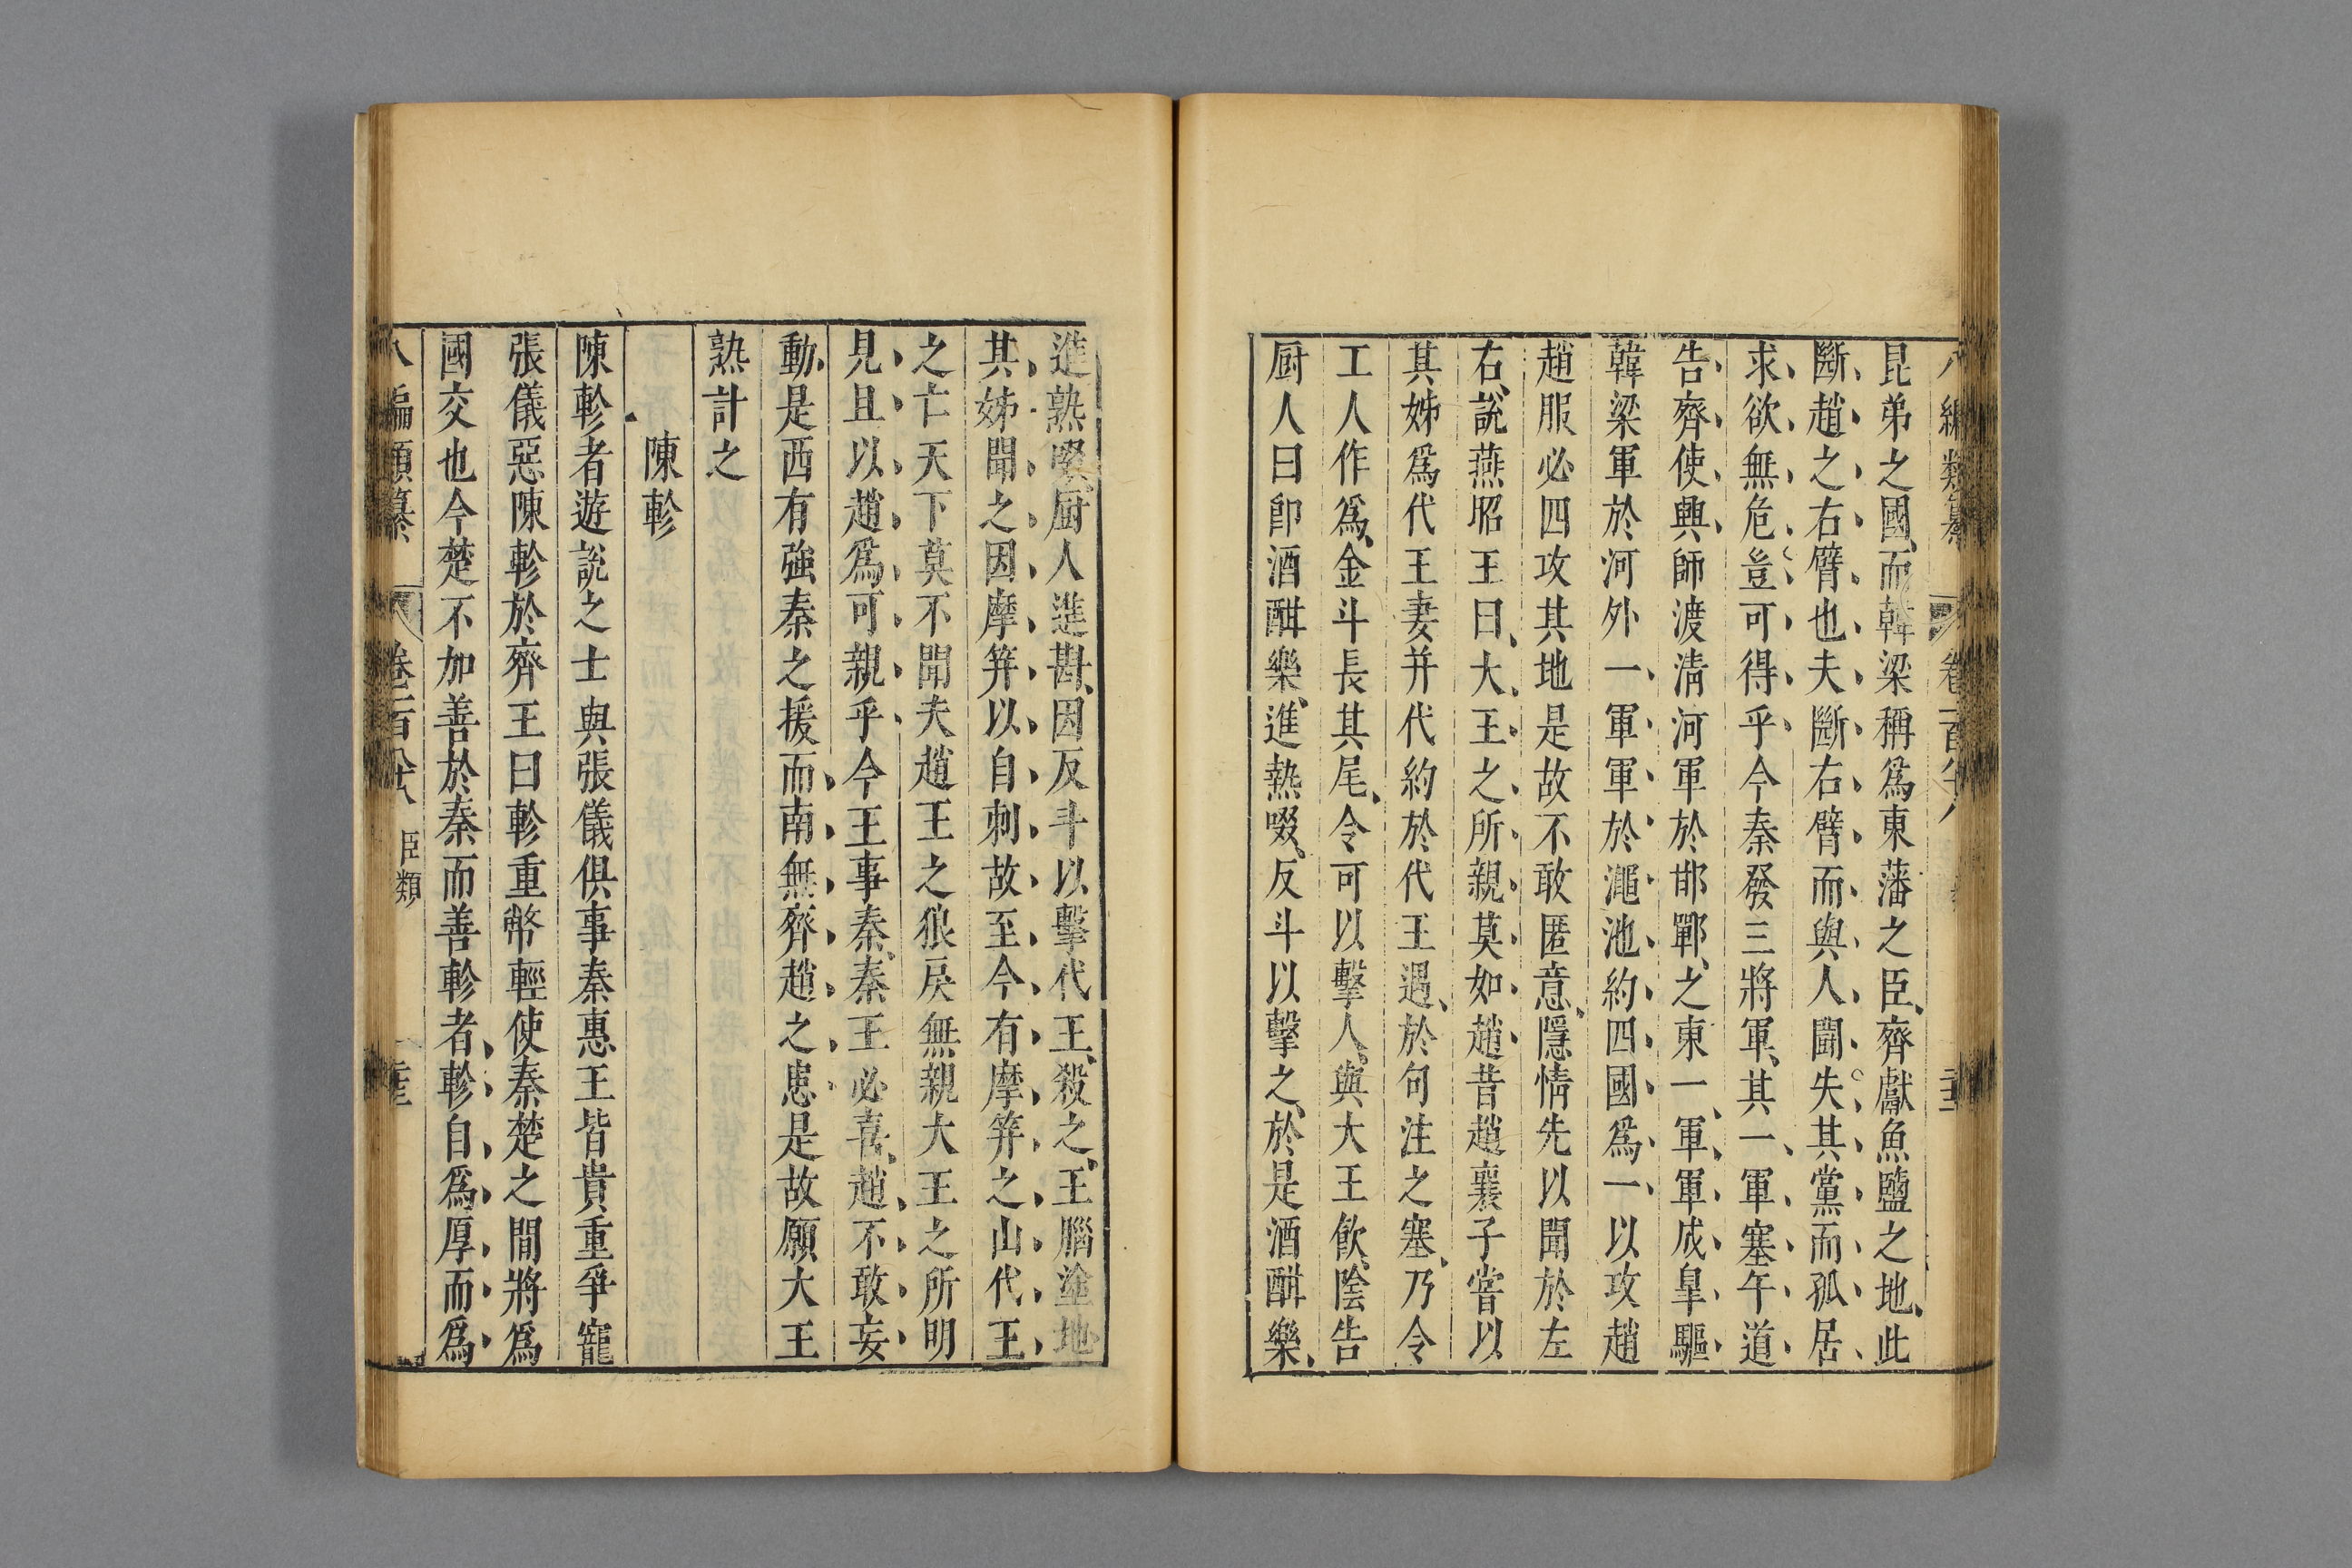 昆弟之國而韓梁稱爲東藩之臣齊獻魚鹽之地此
斷趙之右臂也夫斷右臂而與人鬪失其黨而孤居
求欲無危豈可得乎今秦發三將軍其一軍塞午道
告齊使興師渡淸河軍於邯鄲之東一軍軍成臯驅
韓梁軍於河外一軍軍於澠池約四國爲一以攻趙
趙服必四攻其地是故不敢匿意隱情先以聞於左
右說燕昭王曰大王之所親莫如趙昔趙襄子嘗以
其姊爲代王妻并代約於代王遇於句注之塞乃令
工人作爲金斗長其尾令可以擊人與大王飮陰告
厨人曰卽酒酣樂進熱啜反斗以擊之於是酒酣樂
進熟啜厨人進斟因反斗以擊代王殺之王腦塗地
其姊聞之因摩笄以自刺故至今有摩笄之山代王
之亡天下莫不聞夫趙王之狼戾無親大王之所明
見且以趙爲可親乎今王事秦秦王必喜趙不敢妄
動是西有強秦之援而南無齊趙之患是故願大王
熟計之
陳軫
陳軫者遊說之士與張儀俱事秦惠王皆貴重爭寵
張儀惡陳軫於齊王曰軫重幣輕使秦楚之間將爲
國交也今楚不加善於秦而善軫者軫自爲厚而爲
八編類纂 卷二百八 臣類